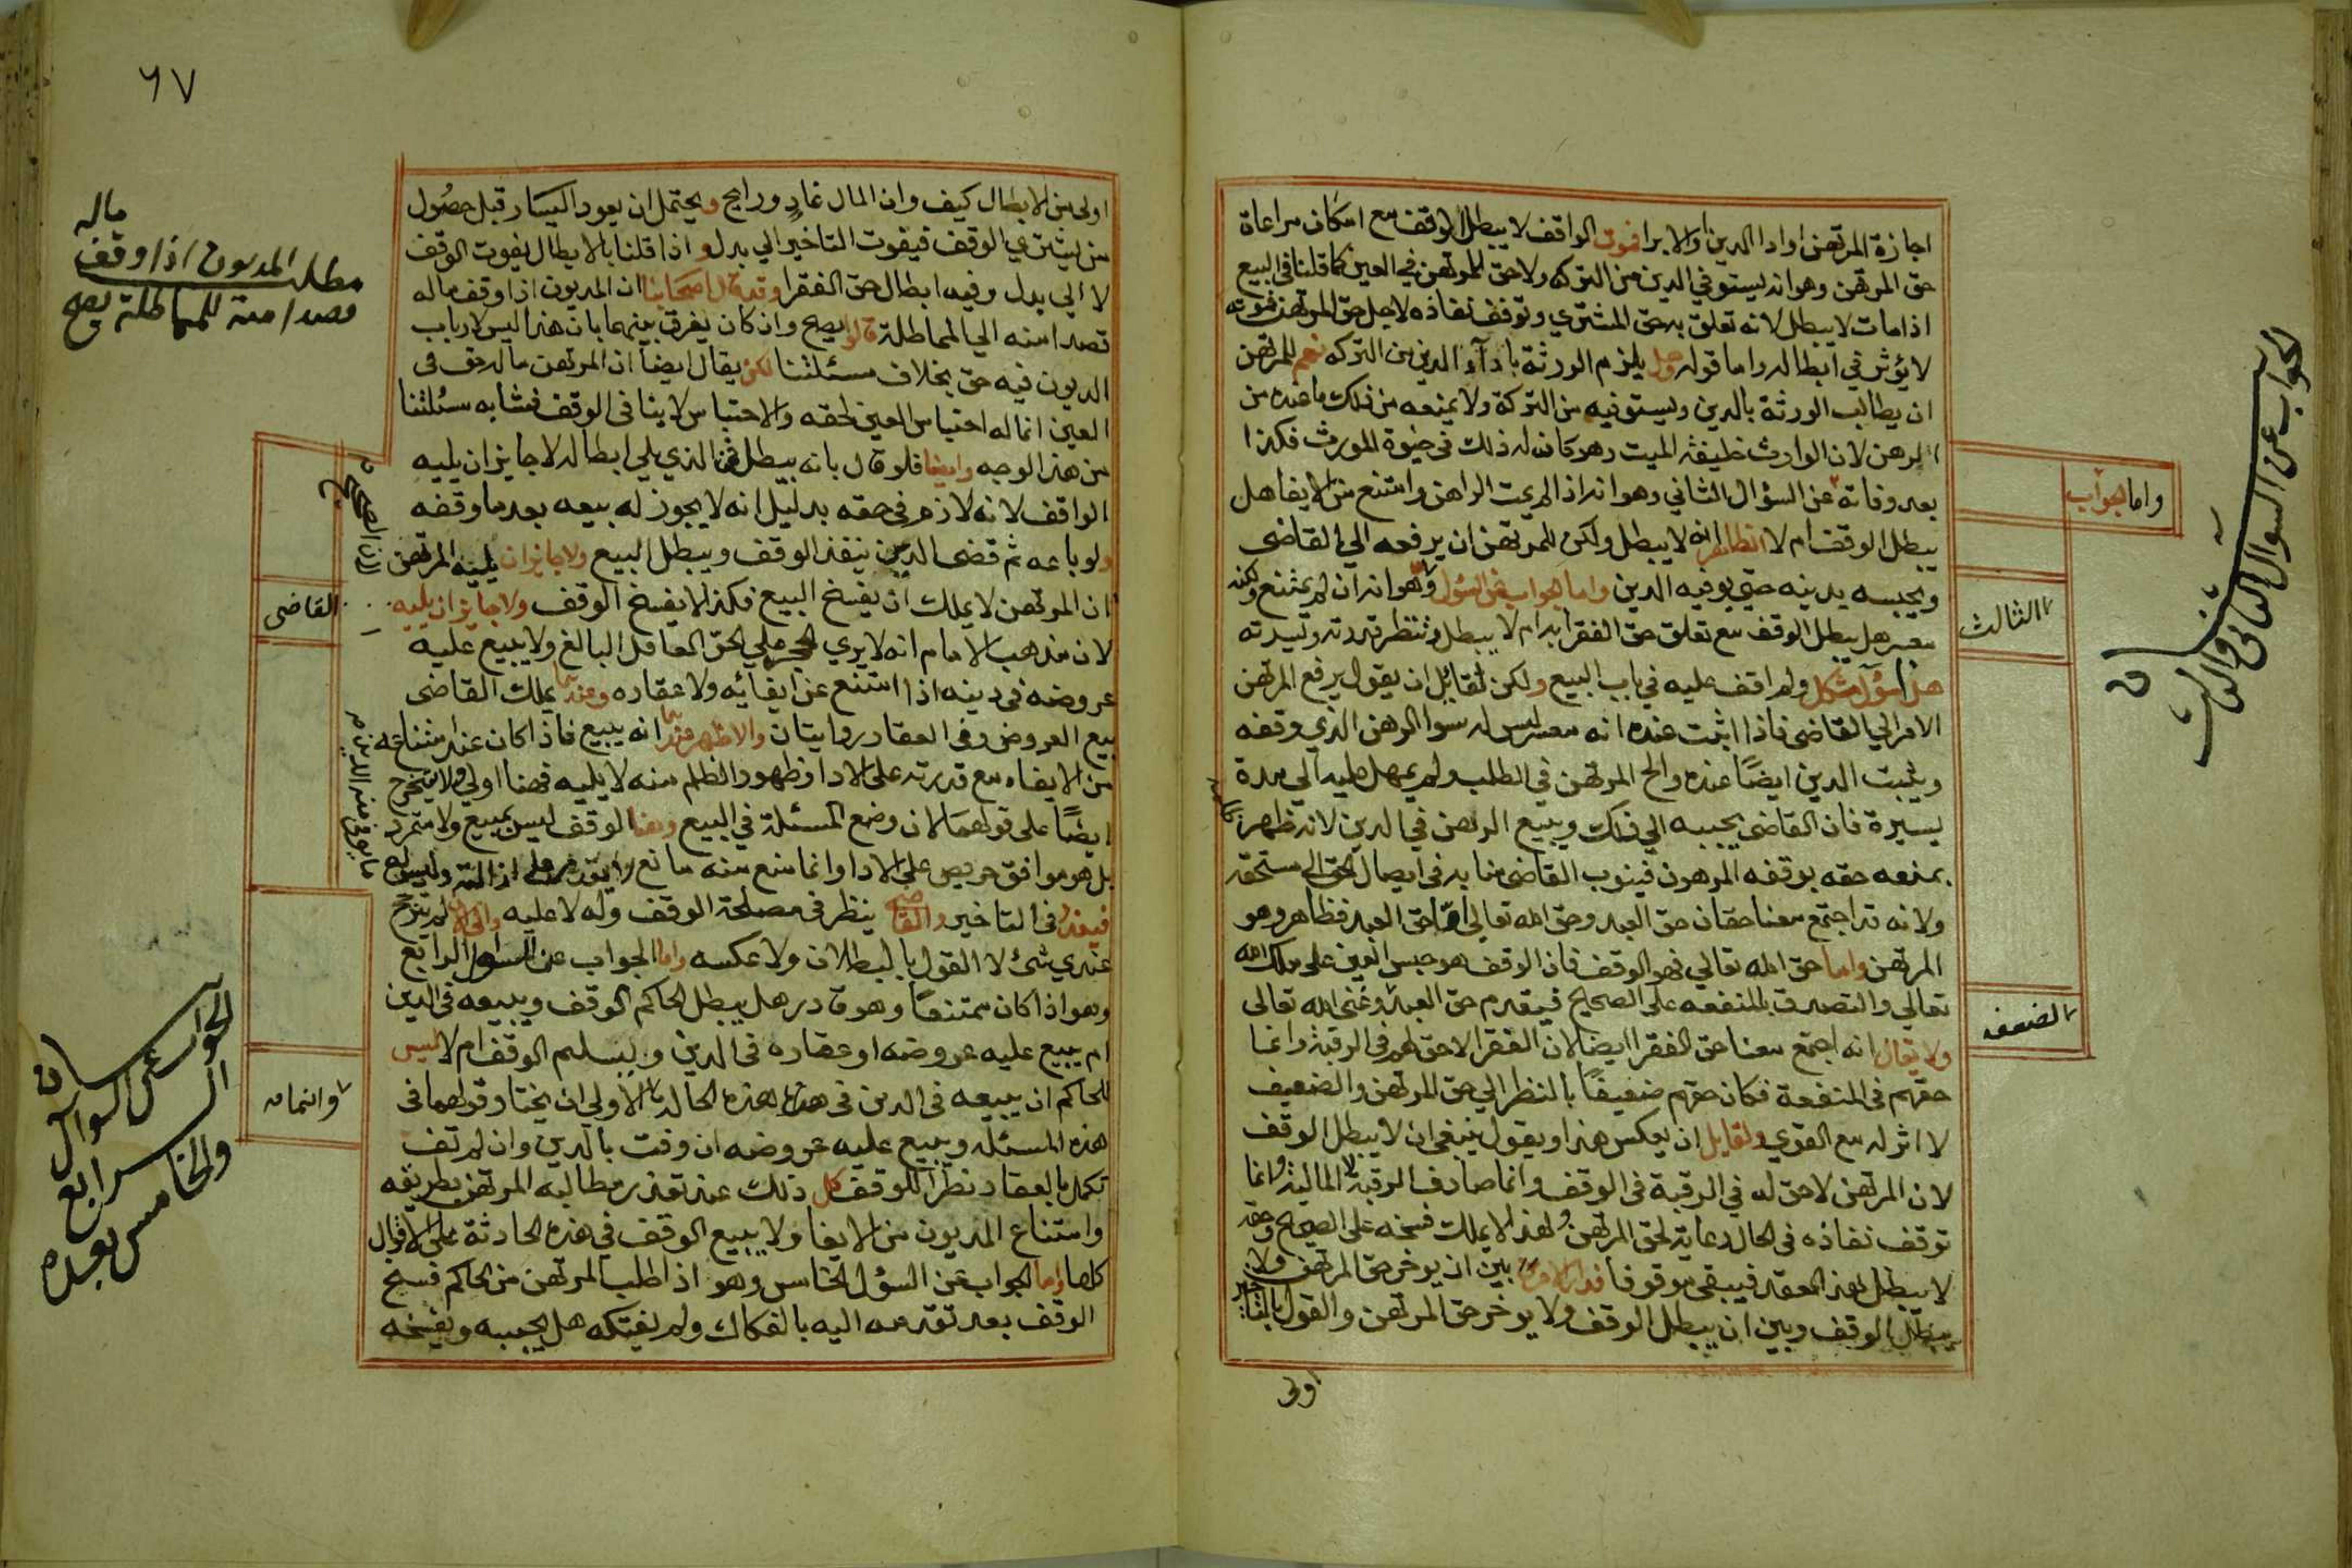 اجازة المرتهن او ادا الدين او الابرا فموت الواقف لا يبطل الوقف مع امكان مراعاة
حق المرتهن وهو انه يستوفي الدين من التركه ولا حق للمرتهن في العين كما قلنا في البيع
اذا مات لا يبطل لانه تعلق به حق المشتري وتوقف نفاذه لاجل حق المرتهن فموته
لا يؤثر في ابطاله واما قوله هل يلزم الورثة بادآء الدين من التركه نعم للمرتهن
ان يطالب الورثة بالدين ويستوفيه من التركة ولا يمنعه من ذلك ما عنده من
الرهن لان الوارث خليفة الميت وهو كان له ذلك في حيوة المورث فكذا
بعد وفاته عن السؤال الثاني وهو انه اذا لم يمت الراهن وامتنع من الايفا هل
يبطل الوقف ام لا الظاهر انه لا يبطل ولكن للمرتهن ان يرفعه الي القاضي
ويحبسه بدينه حتى يوفيه الدين واما الجواب عن السؤل وهو انه ان لم يمتنع ولكنه
معسر هل يبطل الوقف مع تعلق حق الفقرا به ام لا يبطل وتنتظر قدرته وميسرته
هذا سؤل مشكل ولم اقف عليه في باب البيع ولكن لقائل ان يقول يرفع المرتهن
الامر الي القاضي فاذا اثبت عنده انه معسر ليس له سوا الرهن الذي وقفه
ويثبت الدين ايضًا عنده والح المرتهن في الطلب ولم يمهل عليه الي مدة
يسيرة فان القاضي يجيبه الي ذلك ويبيع الرهن في الدين لانه ظهر
بمنعه حقه بوقفه المرهون فينوب القاضي منابه في ايصال الحق الي مستحقه
ولانه قد اجتمع معنا حقان حق العبد وحق الله تعالى اما حق العبد فظاهر وهو
المرتهن واما حق الله تعالي فهو الوقف فان الوقف هو حبس العين على ملك الله
تعالي والتصدق بالمنفعه على الصحيح فيقدم حق العبد وغنى الله تعالى
ولا يقال انه اجتمع معنا حق الفقرا ايضا لان الفقرا لا حق لهم في الرقبة وانما
حقهم في المنفعة فكان حقهم ضعيفًا بالنظر الي حق المرتهن والضعيف
لا اثر له مع القوي ولقايل ان يعكس هذا ويقول ينبغي ان لا يبطل الوقف
لان المرتهن لا حق له في الرقبة في الوقف وانما صادف الرقبة لا المالية وانما
توقف نفاذه في الحال رعاية لحق المرتهن ولهذا لا يملك فسخه على الصحيح وحقه
لا يبطل لهذا العقد فيبقى موقوفا فدار الامر بين ان يوخر حق المرتهن ولا
يبطل الوقف وبين ان يبطل الوقف ولا يوخر حق المرتهن والقول بالتاخير
اولى
واما الجواب
الثالث
الضعف
الجواب عن السوال الثاني والثالث
٦٧
اولى من الابطال كيف وان المال غاد ورايح ويحتمل ان يعود اليسار قبل حصول
من يشتري الوقف فيفوت التاخير الي بدل واذا قلنا بالابطال يفوت الوقف
لا الي بدل وفيه ابطال حق الفقرا وقد قال اصحابنا ان المديون اذا وقف ماله
قصدا منه الي المماطلة قالوا يصح وان كان يفرق بينهما بان هذا ليس لارباب
الديون فيه حق بخلاف مسئلتنا لكن يقال ايضا ان المرتهن ماله حق في
العين انما له احتباس العين لحقه والاحتباس لا ينافى الوقف فتشابه مسئلتنا
من هذا الوجه وايضا فلو قال بانه يبطل فمن الذي يلي ابطاله لا جايز ان يليه
الواقف لانه لازم في حقه بدليل انه لا يجوز له بيعه بعد ما وقفه
ولو باعه ثم قضى الدين ينفذ الوقف ويبطل البيع ولا جايز ان يليه المرتهن
ان المرتهن لا يملك ان يفسخ البيع فكذا لا يفسخ الوقف ولا جايز ان يليه
لان مذهب الامام انه لا يري الحجر علي الحر العاقل البالغ ولا يبيع عليه
عروضه في دينه اذا امتنع عن ايفائه ولا عقاره وعندهما يملك القاضى
بيع العروض وفي العقار روايتان والاظهر عندهما انه يبيع فاذا كان عند امتناعه
من الايفاء مع قدرته على الادا وظهور الظلم منه لا يليه فهنا اولي ولا يتخرج
ايضًا على قولهما لان وضع المسئلة في البيع وهنا الوقف ليس بمبيع ولا متمرد
بل هو موافق حريص علي الادا وانما منع منه مانع
فيعذر في التاخير والقاضي ينظر في مصلحة الوقف وله لا عليه لم يترجح
عندي شئ لا القول بالبطلان ولا عكسه واما الجواب عن السول الرابع
وهو اذا كان ممتنعًا وهو قادر هل يبطل الحاكم الوقف ويبيعه في الدين
ام يبيع عليه عروضه او عقاره في الدين ويسلم الوقف ام لا ليس
للحاكم ان يبيعه في الدين في هذه الحاله الاولي ان يختار قولهما في
هذه المسئله ويبيع عليه عروضه ان وفت بالدين وان لم تف
تكمل بالعقار نظرا للوقف كل ذلك عند تعذر مطالبه المرتهن بطريقه
وامتناع المديون من الايفا ولا يبيع الوقف في هذه الحادثة على الاقوال
كلها واما الجواب عن السؤل الخامس وهو اذا طلب المرتهن من الحاكم فسخ
الوقف بعد تقدمه اليه بالفكاك ولم يفتكه هل يجيبه ويفسخه
مطلب المديون اذا وقف ماله
قصدا منه للمماطلة يصح
القاضى
وانما
الجواب عن السوال
الرابع
والخامس بعده